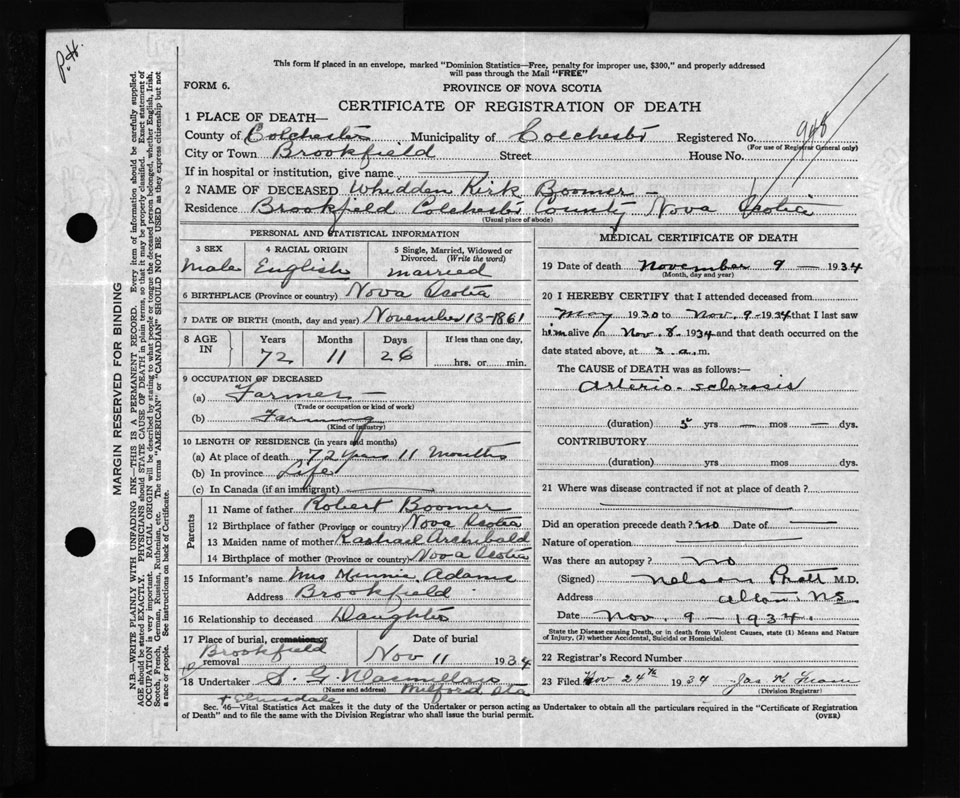 P.H.
This form if placed in an envelope, marked "Dominion Statistics—Free, penalty for improper use, $300," and properly addressed
will pass through the Mail "FREE"
FORM 6.
PROVINCE OF NOVA SCOTIA
CERTIFICATE OF REGISTRATION OF DEATH
1 PLACE OF DEATH—
County of Colchester Municipality of Colchester Registered No. 948
(For use of Registrar General only)
City or Town Brookfield Street House No.
If in hospital or institution, give name
2 NAME OF DECEASED Whidden Kirk Boomer —
Residence Brookfield Colchester County Nova Scotia
(Usual place of abode)
PERSONAL AND STATISTICAL INFORMATION
3 SEX 4 RACIAL ORIGIN 5 Single, Married, Widowed or
Divorced. (Write the word)
Male English married
6 BIRTHPLACE (Province or country) Nova Scotia
7 DATE OF BIRTH (month, day and year) November 13-1861
8 AGE IN Years Months Days If less than one day,
72 11 26 hrs. or min.
9 OCCUPATION OF DECEASED
(a) Farmer —
(Trade or occupation or kind of work)
(b) Farming
(Kind of industry)
10 LENGTH OF RESIDENCE (in years and months)
(a) At place of death 72 years 11 Months
(b) In province Life
(c) In Canada (if an immigrant)
Parents
11 Name of father Robert Boomer
12 Birthplace of father (Province or country) Nova Scotia
13 Maiden name of mother Archibald
14 Birthplace of mother (Province or country) Nova Scotia
15 Informant's name Mrs Minnie Adams
Address Brookfield
16 Relationship to deceased Daughter
17 Place of burial, cremation or Date of burial
Brookfield
removal Nov 11 1934
18 Undertaker S. G. Macmillan
(Name and address) Milford Sta
MEDICAL CERTIFICATE OF DEATH
19 Date of death November 9 — 1934
(Month, day and year)
20 I HEREBY CERTIFY that I attended deceased from
May 1930 to Nov. 9 - 1934 that I last saw
him alive on Nov. 8. 1934 and that death occurred on the
date stated above, at 3 a. m.
The CAUSE OF DEATH was as follows:—
Arterio-sclerosis
(duration) 5 yrs — mos — dys.
CONTRIBUTORY
(duration) yrs mos dys.
21 Where was disease contracted if not at place of death?
Did an operation precede death? no Date of —
Nature of operation
Was there an autopsy? no
(Signed) Nelson Pratt M.D.
Address NS
Date Nov. 9 - 1934.
State the Disease causing Death, or in death from Violent Causes, state (1) Means and Nature
of Injury, (2) whether Accidental, Suicidal or Homicidal.
22 Registrar's Record Number
23 Filed Nov 24th 1934 Jas
(Division Registrar)
Sec. 46—Vital Statistics Act makes it the duty of the Undertaker or person acting as Undertaker to obtain all the particulars required in the "Certificate of Registration
of Death" and to file the same with the Division Registrar who shall issue the burial permit.
(OVER)
MARGIN RESERVED FOR BINDING
N.B.—WRITE PLAINLY WITH UNFADING INK—THIS IS A PERMANENT RECORD. Every item of information should be carefully supplied.
AGE should be stated EXACTLY. PHYSICIANS should STATE CAUSE OF DEATH in plain terms, so that it may be properly classified. Exact statement of
OCCUPATION is very important. RACIAL ORIGIN will be described by stating to what people or tongue the deceased person belonged, whether English, Irish,
Scotch, French, German, Russian, Ruthenian, etc. The terms "AMERICAN" or "CANADIAN" SHOULD NOT BE USED as they express citizenship but not
a race or people. See instructions on back of Certificate.